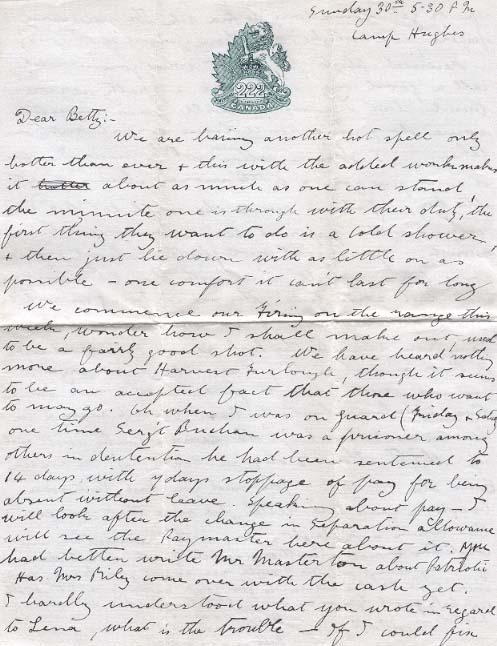 Sunday 30th 5-30 P M
Camp Hughes
222
CANADA
Dear Betty:-
We are having another hot spell only
hotter than ever & this with the added work makes
it hotter about as much as one can stand,
the minute one is through with their duty, the
first thing they want to do is a cold shower,
& then just lie down with as little on as
possible - one comfort it can't last for long
We commence our Firing on the range this
week, wonder how I shall make out, used
to be a fairly good shot. We have heard nothing
more about Harvest Furlough, though it seems
to be an accepted fact that those who want
to may go. Oh when I was on guard (Friday &
one time Serg't Bucham was a prisoner among
others in detention he had been sentenced to
14 days with 7 days stoppage of pay for being
absent without leave. Speaking about pay - I
will look after the change in Separation allowance
will see the Paymaster here about it. You
had better write Mr Masterton about Patriotic
Has Mrs Riley come over with the cash yet.
I hardly understood what you wrote in regard
to Lena, what is the trouble - If I could fix